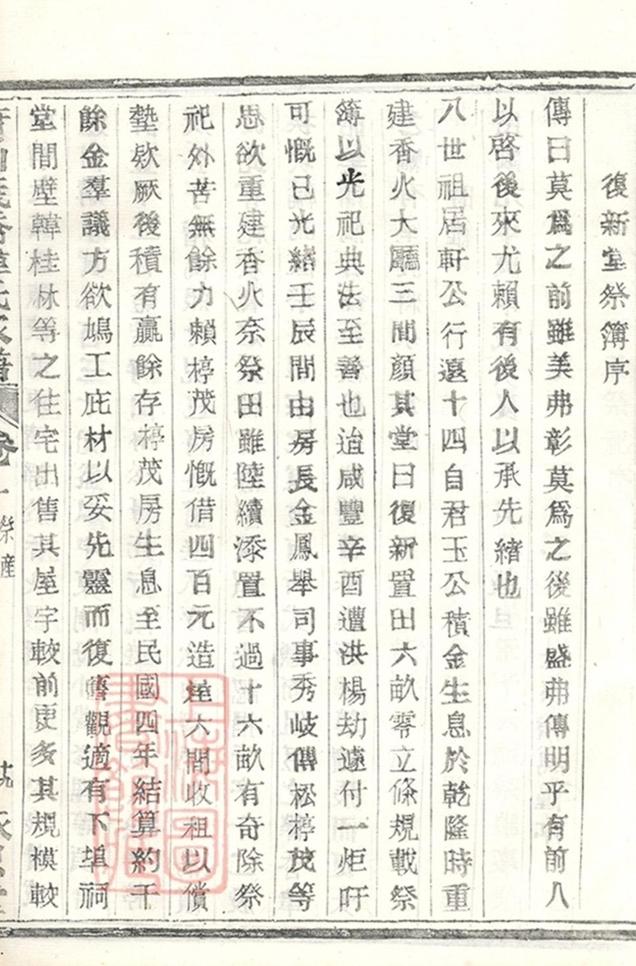 復新堂祭簿序
傳曰莫爲之前雖美弗彰莫爲之後雖盛弗傳明乎有前人
以啓後來尤賴有後人以承先緒也
八世祖居軒公行遠十四自君玉公積金生息於乾隆時重
建香火大廳三間顏其堂曰復新置田六畝零立條規載祭
簿以光祀典法至善也迨咸豐辛酉遭洪楊劫遽付一炬吁
可慨已光緒壬辰間由房長金鳳舉司事秀岐傳松椁茂等
思欲重建香火奈祭田雖陸續添置不過十六畝有奇除祭
祀外苦無餘力賴椁茂房慨借四百元造達大間收租以償
墊欵厥後積有贏餘存椁茂房生息至民國四年結算約千
餘金羣議方欲鳩工庇材以妥先靈而復舊觀適有下埴祠
堂間壁韓桂林等之住宅出售其屋宇較前更多其規模較
氏家譜
卷一
祭產